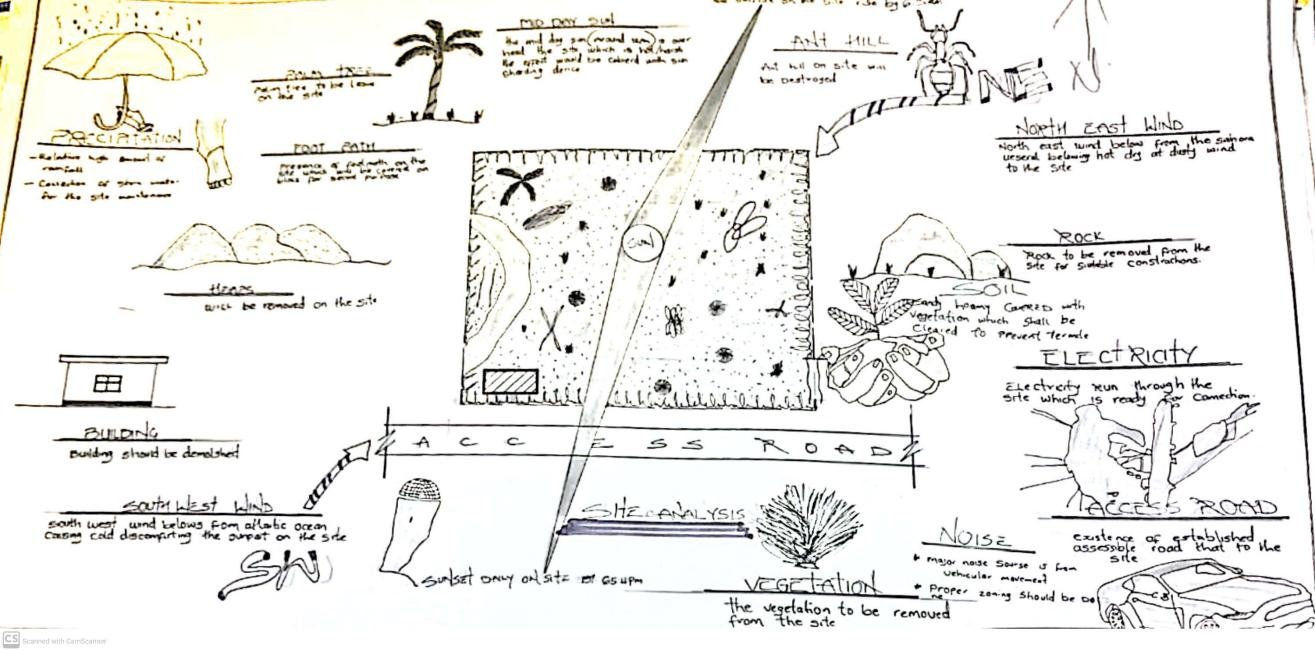 sunrise on the site rise by 6:
MID DAY SUN
the mid day sun (around 12pm) is over
head the site which is hot/harsh
the effect would be catered with sun
sharding device
ANT HILL
Ant hill on site will
be Destroyed
NE
N
PALM TREE
Palm tree to be leave
on the site
PRECIPITATION
- Relative high amount of
rainfall
- Collection of storm water
for the site maintenance
FOOT PATH
presence of footpath on the
site which will be covered on
block for some purpose
NORTH EAST WIND
North east wind below from the sahara
desert belowing hot dry at dusty wind
to the site
SUN
ROCK
Rock to be removed from the
site for suitable constructions.
SOIL
Sandy loamy COVERED with
vegetation which shall be
Cleared To prevent termite
HEAPS
will be removed on the site
ELECTRICITY
Electricity run through the
site which is ready for Connection.
BUILDING
Building should be demolished
ACCESS ROAD
SOUTH WEST WIND
South west wind belows from atlantic ocean
Causing cold discomforting the on the site
SW
SITE ANALYSIS
SUNSET DAILY ON SITE BY 6:54PM
VEGETATION
the vegetation to be removed
from the site
NOISE
* major noise sourse is from
vehicular movement
* Proper zoning should be Do
ne
ACCESS ROAD
existence of established
assessible road that to the
site
CS Scanned with CamScanner